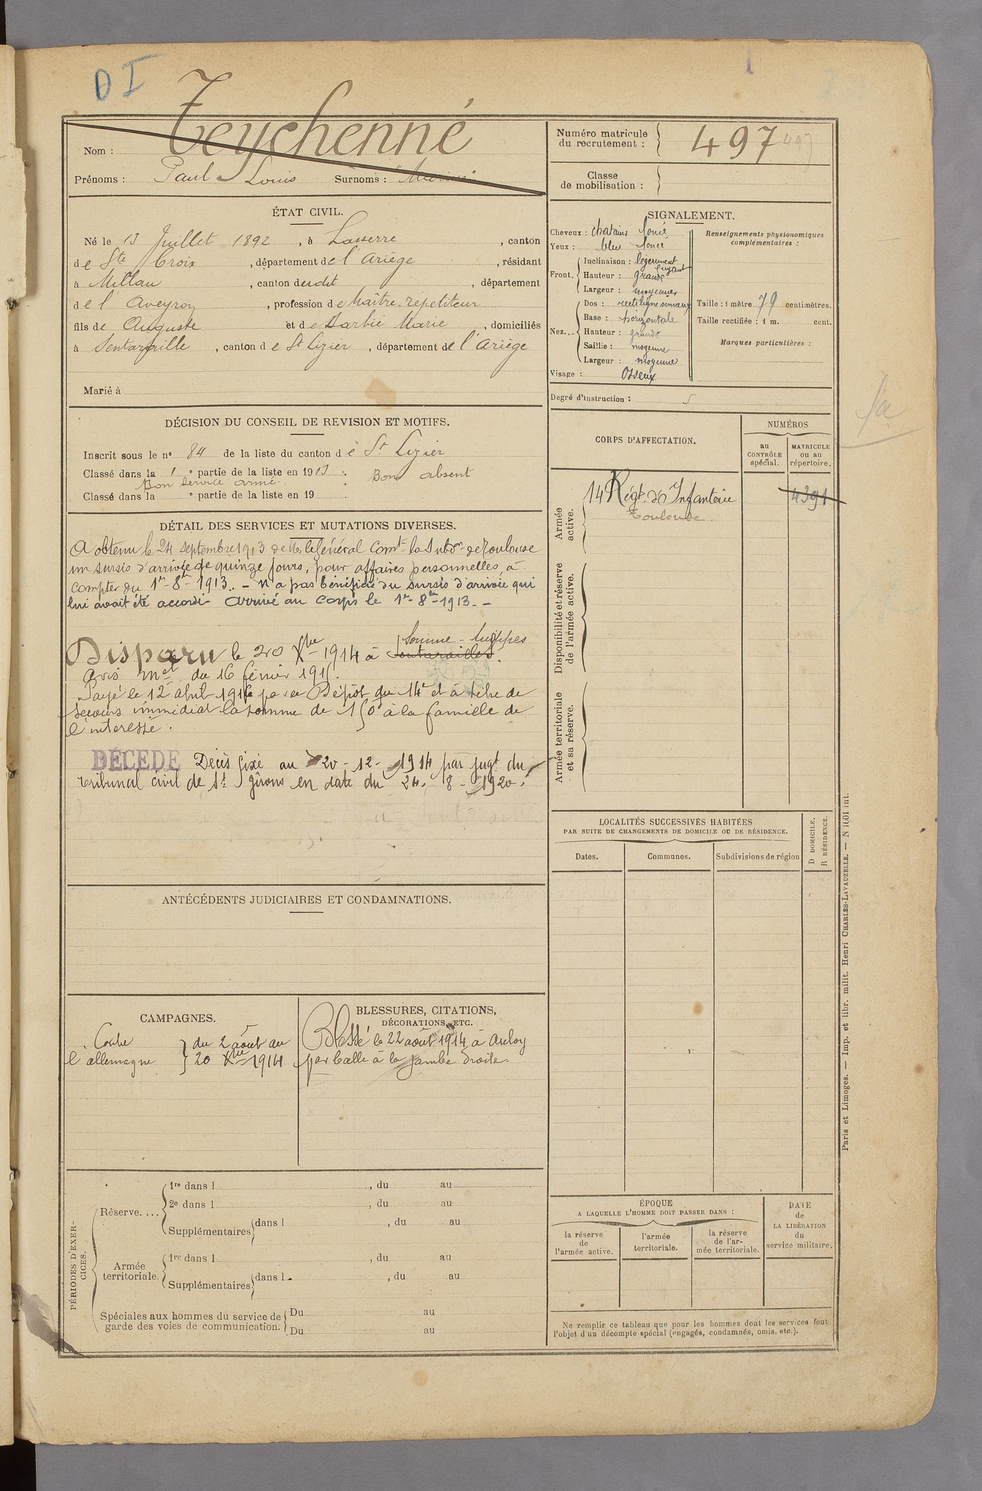 D I
Nom : Teychenné
Prénoms : Paul Louis Surnoms :
Numéro matricule
du recrutement : 497
Classe
de mobilisation :
ÉTAT CIVIL.
Né le 13 Juillet 1892, à Lasserre, canton
de Ste Croix, département de l'Ariège, résidant
à Millau, canton dudit, département
de l'Aveyron, profession de Maître-répétiteur
fils de Auguste et de Barbié Marie, domiciliés
à Sentaraille, canton de St Lizier, département de l'Ariège
Marié à
SIGNALEMENT.
Cheveux : chatains foncé
Yeux : bleu foncé
Front. Inclinaison : légèrement fuyant
Hauteur : grande
Largeur : moyenne
Nez... Dos : rectiligne sinueux
Base : horizontale
Hauteur : grande
Saillie : moyenne
Largeur : moyenne
Visage : Osseux
Renseignements physionomiques
complémentaires :
Taille : 1 mètre 79 centimètres.
Taille rectifiée : 1 m. cent.
Marques particulières :
Degré d'instruction :
DÉCISION DU CONSEIL DE REVISION ET MOTIFS.
Inscrit sous le n° 84 de la liste du canton de St Lizier
Classé dans la 1 e partie de la liste en 1913 : Bon absent
Bon service armé
Classé dans la e partie de la liste en 19 :
DÉTAIL DES SERVICES ET MUTATIONS DIVERSES.
A obtenu le 24 septembre 1913 de Mr le Général Comt la Subdon de Toulouse
un sursis d'arrivée de quinze jours, pour affaires personnelles, à
compter du 1er-8-1913. - n'a pas bénéficié du sursis d'arrivée qui
lui avait été accordé - arrivé au corps le 1er-8-1913. -
Somme-Suippes
Disparu le 20 Xbre 1914 à Sentarailles.
Avis Mel du 16 février 1915.
Payé le 12 abril 1916 par le Dépôt du 14e et à titre de
secours immédiat la somme de 150 à la famille de
l'intéressé.
DÉCÉDÉ Décès fixé au 20-12-1914 par jugt du
tribunal civil de St Girons en date du 24-8-1920.
CORPS D'AFFECTATION.
NUMÉROS
au
CONTRÔLE
spécial.
MATRICULE
ou au
répertoire.
Armée
active.
14 Régt d'Infanterie 4391
Toulouse.
Disponibilité et réserve
de l'armée active.
Armée territoriale
et sa réserve.
LOCALITÉS SUCCESSIVES HABITÉES
PAR SUITE DE CHANGEMENTS DE DOMICILE OU DE RÉSIDENCE.
Dates. Communes. Subdivisions de région
D DOMICILE.
R RÉSIDENCE.
ANTÉCÉDENTS JUDICIAIRES ET CONDAMNATIONS.
CAMPAGNES.
Contre
l'allemagne
du 2 août au
20 Xbre 1914
BLESSURES, CITATIONS,
DÉCORATIONS, ETC.
Blessé le 22 août 1914 à Anloy
par balle à la jambe droite.
PÉRIODES D'EXERCICES.
Réserve.... 1re dans l , du au
2e dans l , du au
Supplémentaires dans l , du au
Armée
territoriale. 1re dans l , du au
Supplémentaires dans l , du au
Spéciales aux hommes du service de
garde des voies de communication. Du au
Du au
ÉPOQUE
A LAQUELLE L'HOMME DOIT PASSER DANS :
la réserve
de
l'armée active.
l'armée
territoriale.
la réserve
de l'ar-
mée territoriale.
DATE
de
LA LIBÉRATION
du
service militaire.
Ne remplir ce tableau que pour les hommes dont les services font
l'objet d'un décompte spécial (engagés, condamnés, omis, etc.).
Paris et Limoges. — Imp. et libr. milit. Henri CHARLES-LAVAUZELLE. —